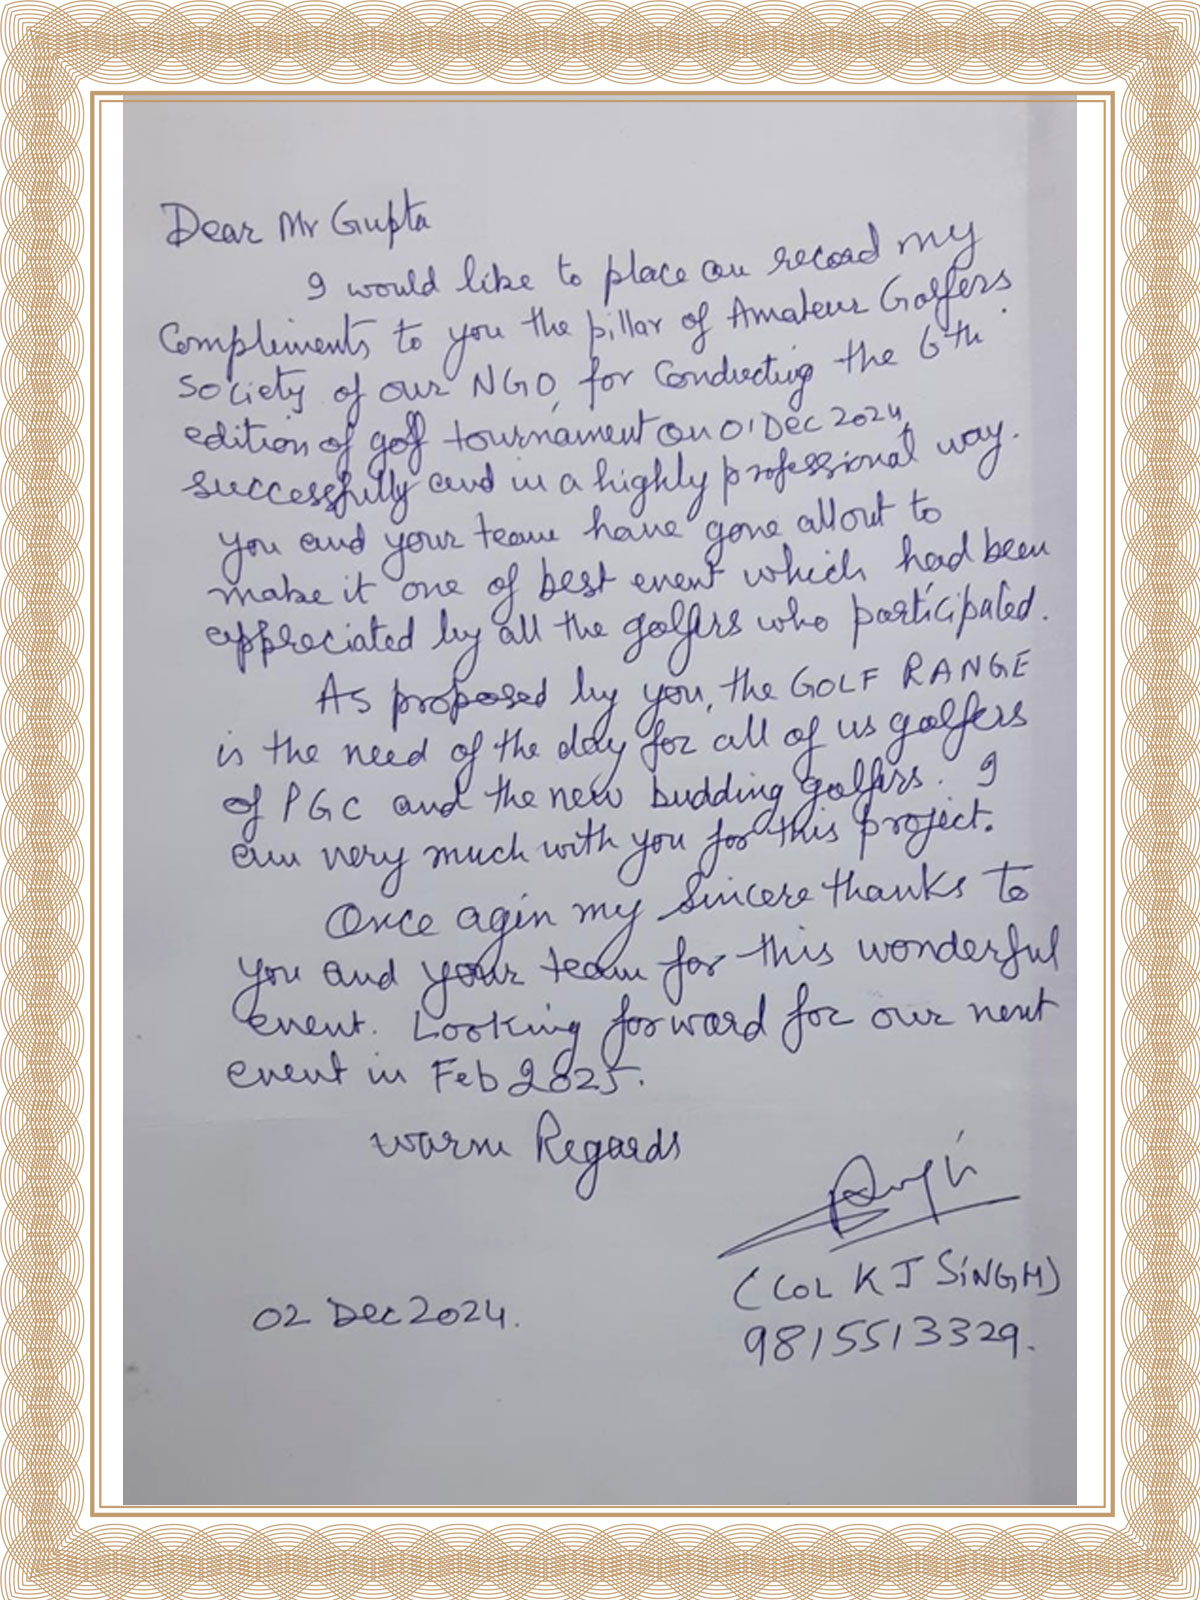 Dear Mr Gupta
I would like to place on record my
Compliments to you the pillar of Amateur Golfers
Society of our NGO, for Conducting the 6th
edition of golf tournament on 01 Dec 2024,
successfully and in a highly professional way.
you and your team have gone all out to
make it one of best event which had been
appreciated by all the golfers who participated.
As proposed by you, the GOLF RANGE
is the need of the day for all of us golfers
of PGC and the new budding golfers. I
am very much with you for this project.
Once agin my sincere thanks to
you and your team for this wonderful
event. Looking forward for our next
event in Feb 2025.
Warm Regards
(COL K J SINGH)
02 Dec 2024.
9815513329.